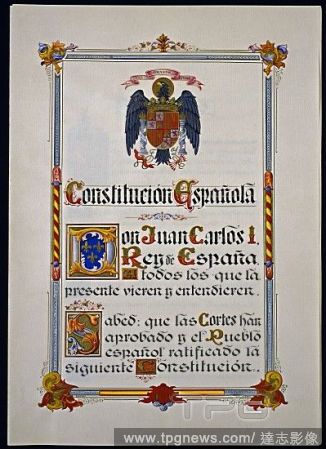 Constitución Española
Don Juan Carlos I,
Rey de España
A todos los que la
presente vieren y entendieren.
Sabed: que las Cortes han
aprobado y el Pueblo
español ratificado la
siguiente Constitución.
TPG
www.tpgnews.com/ 達志影像